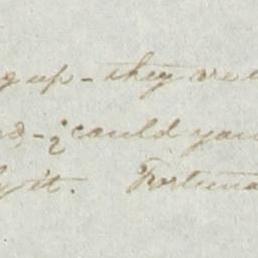 g up - they are
- ¿ could you
it. Fortuna